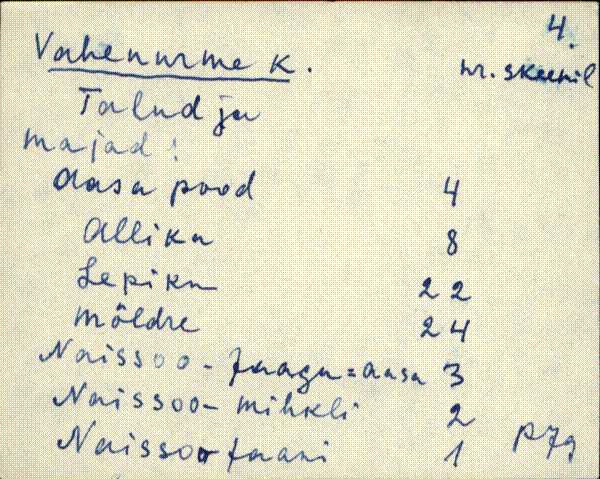 4.
Vahenurme k.
nr. skeemil
Talud ja
majad:
Aasa pood 4
Allika 8
Lepiku 22
Möldre 24
Naissoo-Jaagu=aasa 3
Naissoo-Mihkli 2
Naissoo-Jaani 1
PJg